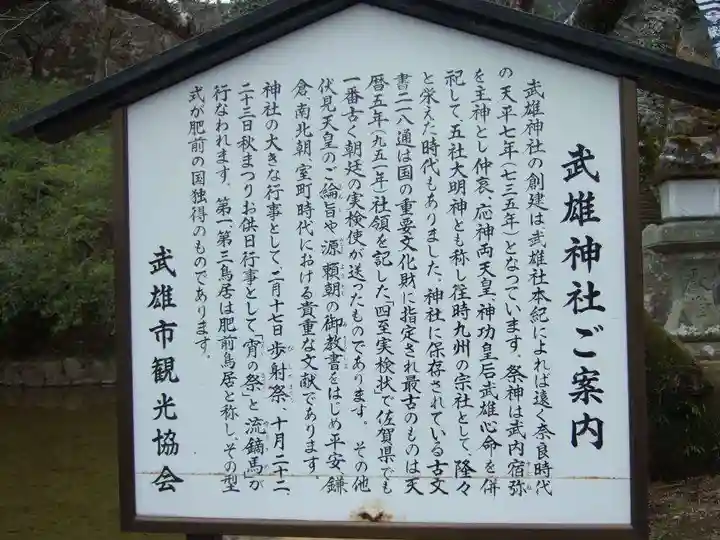 武雄神社ご案内
武雄神社の創建は武雄社本紀によれば遠く奈良時代
の天平七年(七三五年)となつています。祭神は武内宿弥
を主神とし仲哀、応神両天皇、神功皇后、武雄心命を併
祀して、五社大明神とも称し往時九州の宗社として、隆々
と栄えた時代もありました。神社に保存されている古文
書二一八通は国の重要文化財に指定され最古のものは天
暦五年(九五一年)社領を記した「四至実検状」で佐賀県でも
一番古く朝廷の実検使が送ったものであります。その他
伏見天皇のご綸旨や源頼朝の御教書をはじめ平安、鎌
倉、南北朝、室町時代における貴重な文献であります。
神社の大きな行事として、二月十七日歩射祭、十月二十二、
二十三日秋まつりお供日行事として「宵の祭」と流鏑馬」が
行なわれます。第二、第三鳥居は肥前鳥居と称し、その型
式が肥前の国独得のものであります。
武雄市観光協会